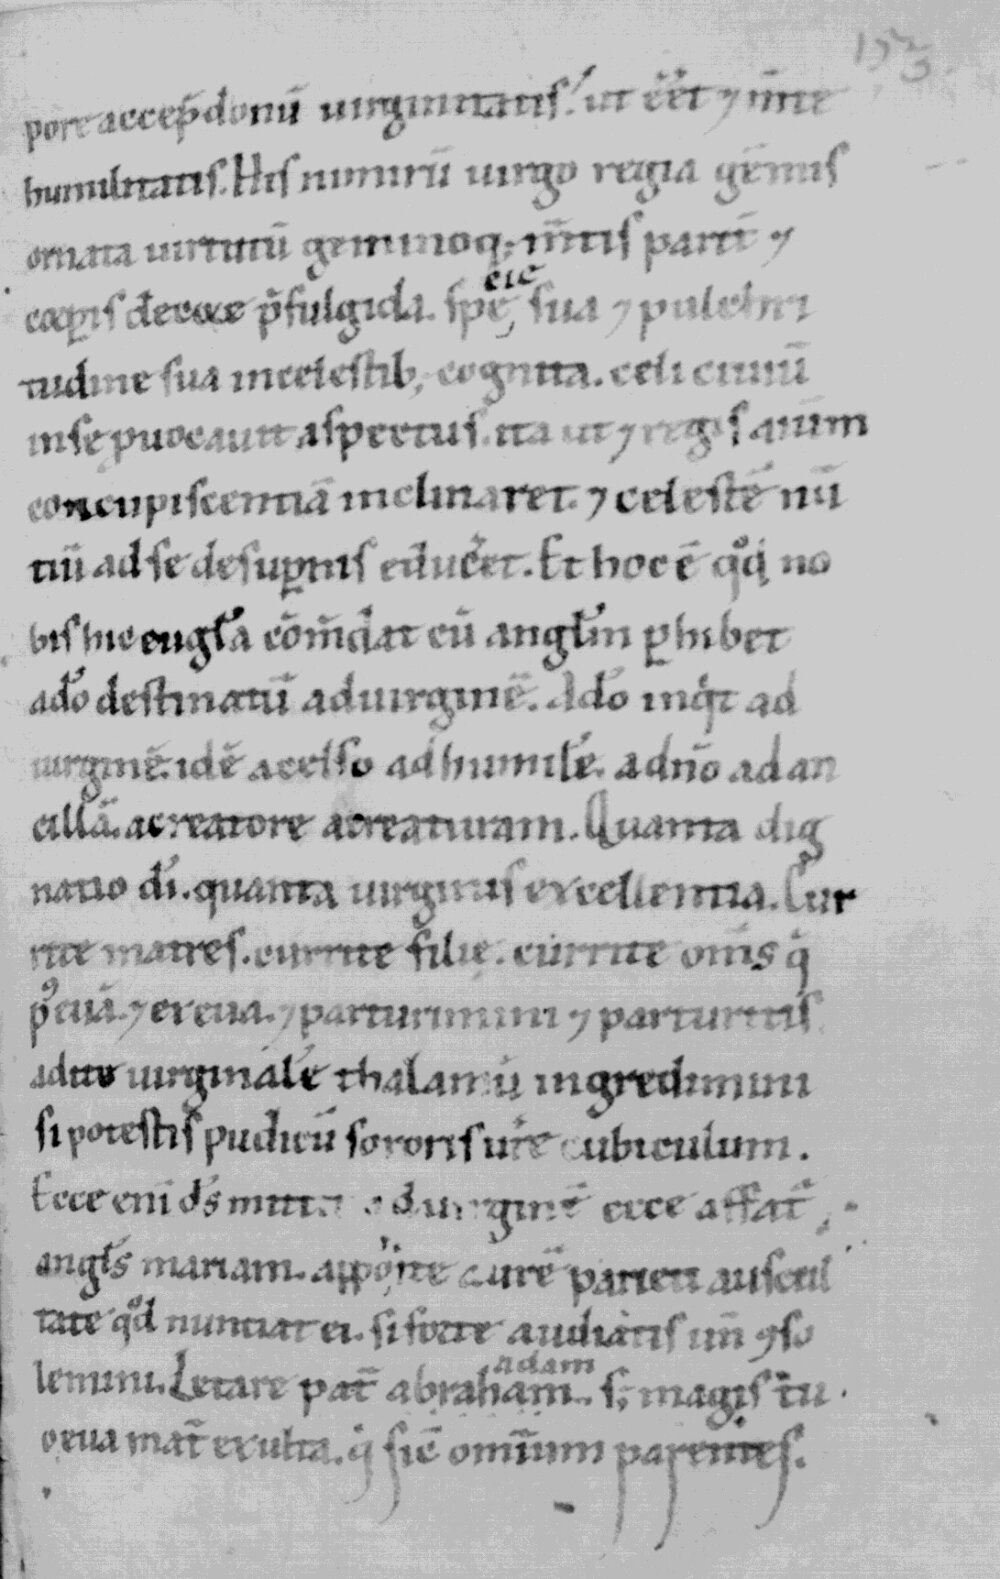 153
pore accep̄ donū uirginitatis. ut eēt ⁊ m̄te
humilitatis. His nimirū uirgo regia gēmis
ornata uirtutū geminoq; m̄tis pariť ⁊
corꝑis decore p̄fulgida. spē cie sua ⁊ pulchri
tudine sua in celestib; cognita. celi ciuiū
in se ꝓuocauit aspectus. ita ut ⁊ regis animū
concupiscentiā inclinaret. ⁊ celestē nū
tiū ad se de suꝑnis educ̄et. Et hoc ē qd̓ no
bis hic eugl̓a cōm̄dat cū angl̓m ꝑhibet
a do̓ destinatū ad uirginē. A do̓ inqͥt ad
uirginē. idē a celso ad humilē. a dn̄o ad an
cillā. a creatore a creaturam. Quanta dig
natio di̓. quanta uirginis excellentia. Cur
rite matres. currite filie. currite om̄s q̓
p̓ euā. ⁊ ex eua. ⁊ parturimini ⁊ parturitis
adite uirginalē thalamū ingredimini
si potestis pudicū sororis ur̄e cubiculum.
Ecce eni ds̓ mittit ad uirginē ecce affať
angl̓s mariam. apponite aurē parieti auscul
tate qd̓ nuntiat ei. si forte audiatis un̄ ꝯso
lemini. Letare pať abraham adam. s; magis tu
o eua mať exulta. q̓ sic̄ omīum parentes.